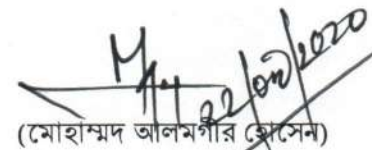 ২২/০৯/২০২০
(মোহাম্মদ আলমগীর হোসেন)